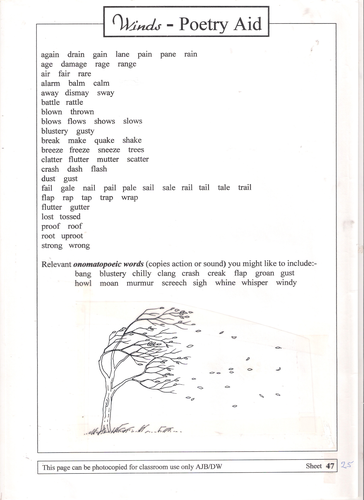 Winds - Poetry Aid
again drain gain lane pain pane rain
age damage rage range
air fair rare
alarm balm calm
away dismay sway
battle rattle
blown thrown
blows flows shows slows
blustery gusty
break make quake shake
breeze freeze sneeze trees
clatter flutter mutter scatter
crash dash flash
dust gust
fail gale nail pail pale sail sale rail tail tale trail
flap rap tap trap wrap
flutter gutter
lost tossed
proof roof
root uproot
strong wrong
Relevant onomatopoeic words (copies action or sound) you might like to include:-
bang blustery chilly clang crash creak flap groan gust
howl moan murmur screech sigh whine whisper windy
This page can be photocopied for classroom use only AJB/DW
Sheet 47
25